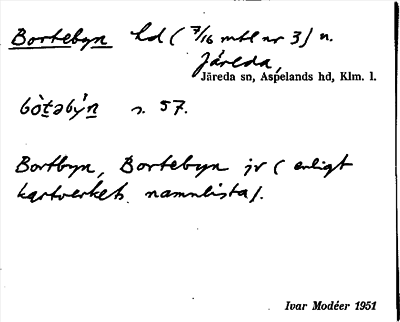 Bortebyn hd (7/16 mtl nr 3) n.
Järeda,
Järeda sn, Aspelands hd, Klm. l.
bò̀tǝbý̀n s. 57.
Bortbyn, Bortebyn jr (enligt
kartverkets namnlista).
Ivar Modéer 1951